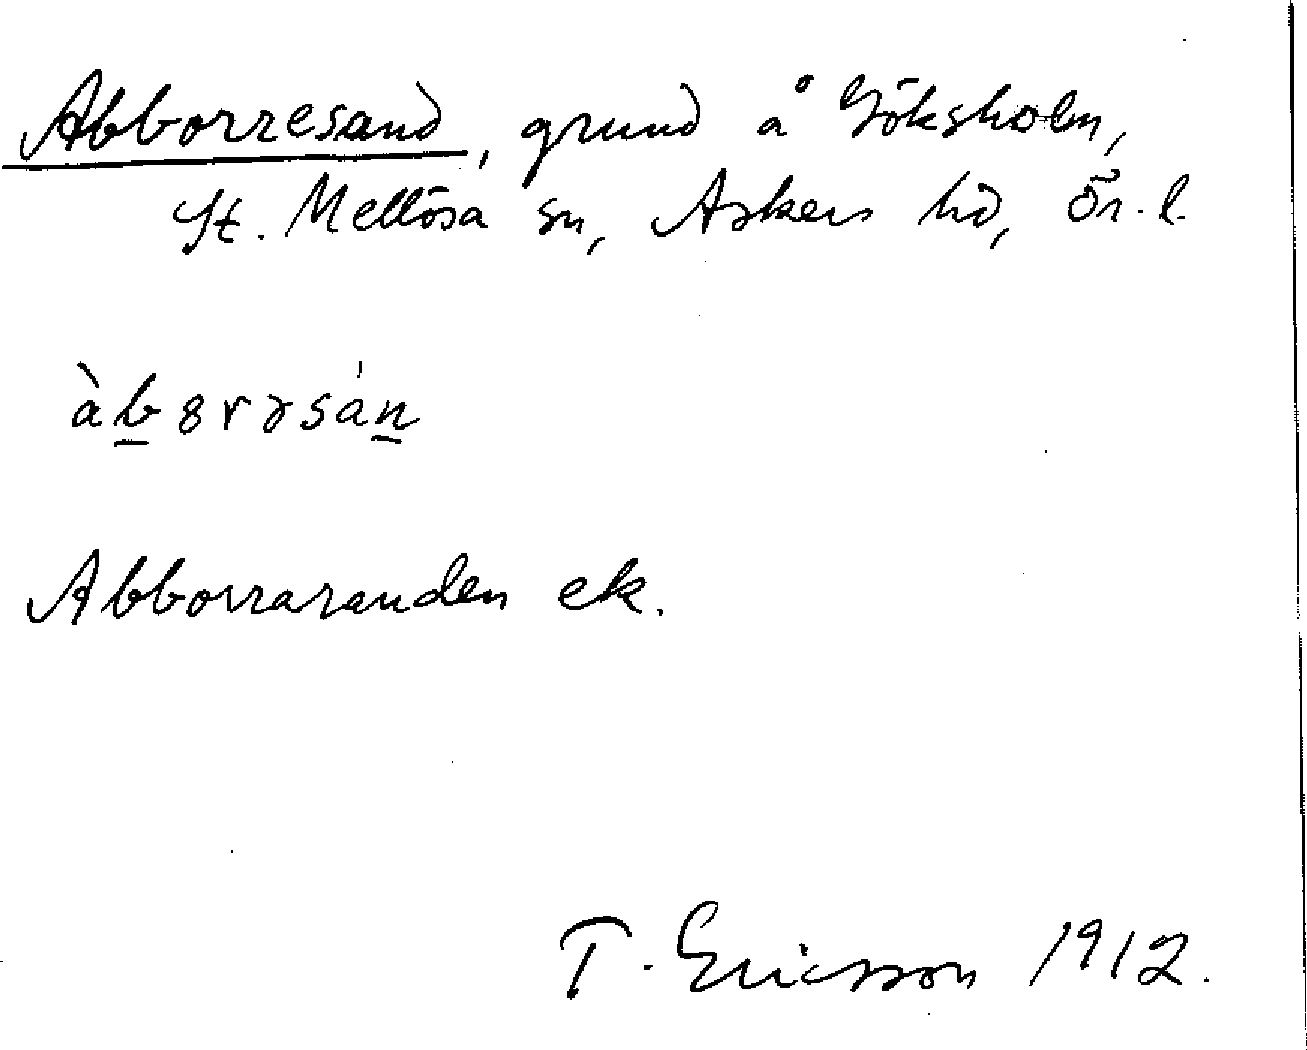 Abborresand, grund å Göksholm,
St. Mellösa sn, Askers hd, Ör. l.
àb̲ɞrəsán̲
Abborraranden ek.
T. Ericsson 1912.